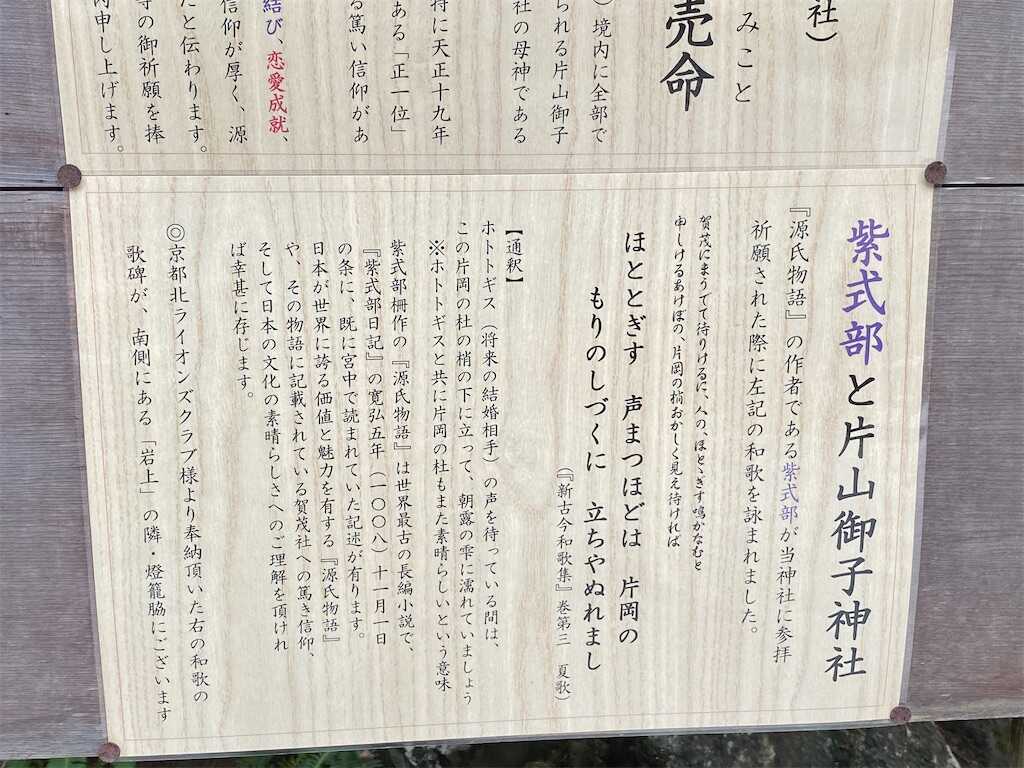 社）
みこと
売命
）境内に全部で
られる片山御子
社の母神である
特に天正十九年
ある「正一位」
る篤い信仰があ
結び、恋愛成就、
信仰が厚く、源
たと伝わります。
等の御祈願を捧
内申し上げます。
紫式部と片山御子神社
『源氏物語』の作者である紫式部が当神社に参拝
祈願された際に左記の和歌を詠まれました。
賀茂にまうでて待りけるに、人の、ほとゝぎす鳴かなむと
申しけるあけぼの、片岡の梢おかしく見え待ければ
ほととぎす　声まつほどは　片岡の
もりのしづくに　立ちやぬれまし
（『新古今和歌集』巻第三　夏歌）
【通釈】
ホトトギス（将来の結婚相手）の声を待っている間は、
この片岡の杜の梢の下に立って、朝露の雫に濡れていましょう
※ホトトギスと共に片岡の杜もまた素晴らしいという意味
紫式部柵作の『源氏物語』は世界最古の長編小説で、
『紫式部日記』の寛弘五年（一〇〇八）十一月一日
の条に、既に宮中で読まれていた記述が有ります。
日本が世界に誇る価値と魅力を有する『源氏物語』
や、その物語に記載されている賀茂社への篤き信仰、
そして日本の文化の素晴らしさへのご理解を頂けれ
ば幸甚に存じます。
◎京都北ライオンズクラブ様より奉納頂いた右の和歌の
歌碑が、南側にある「岩上」の隣・燈籠脇にございます